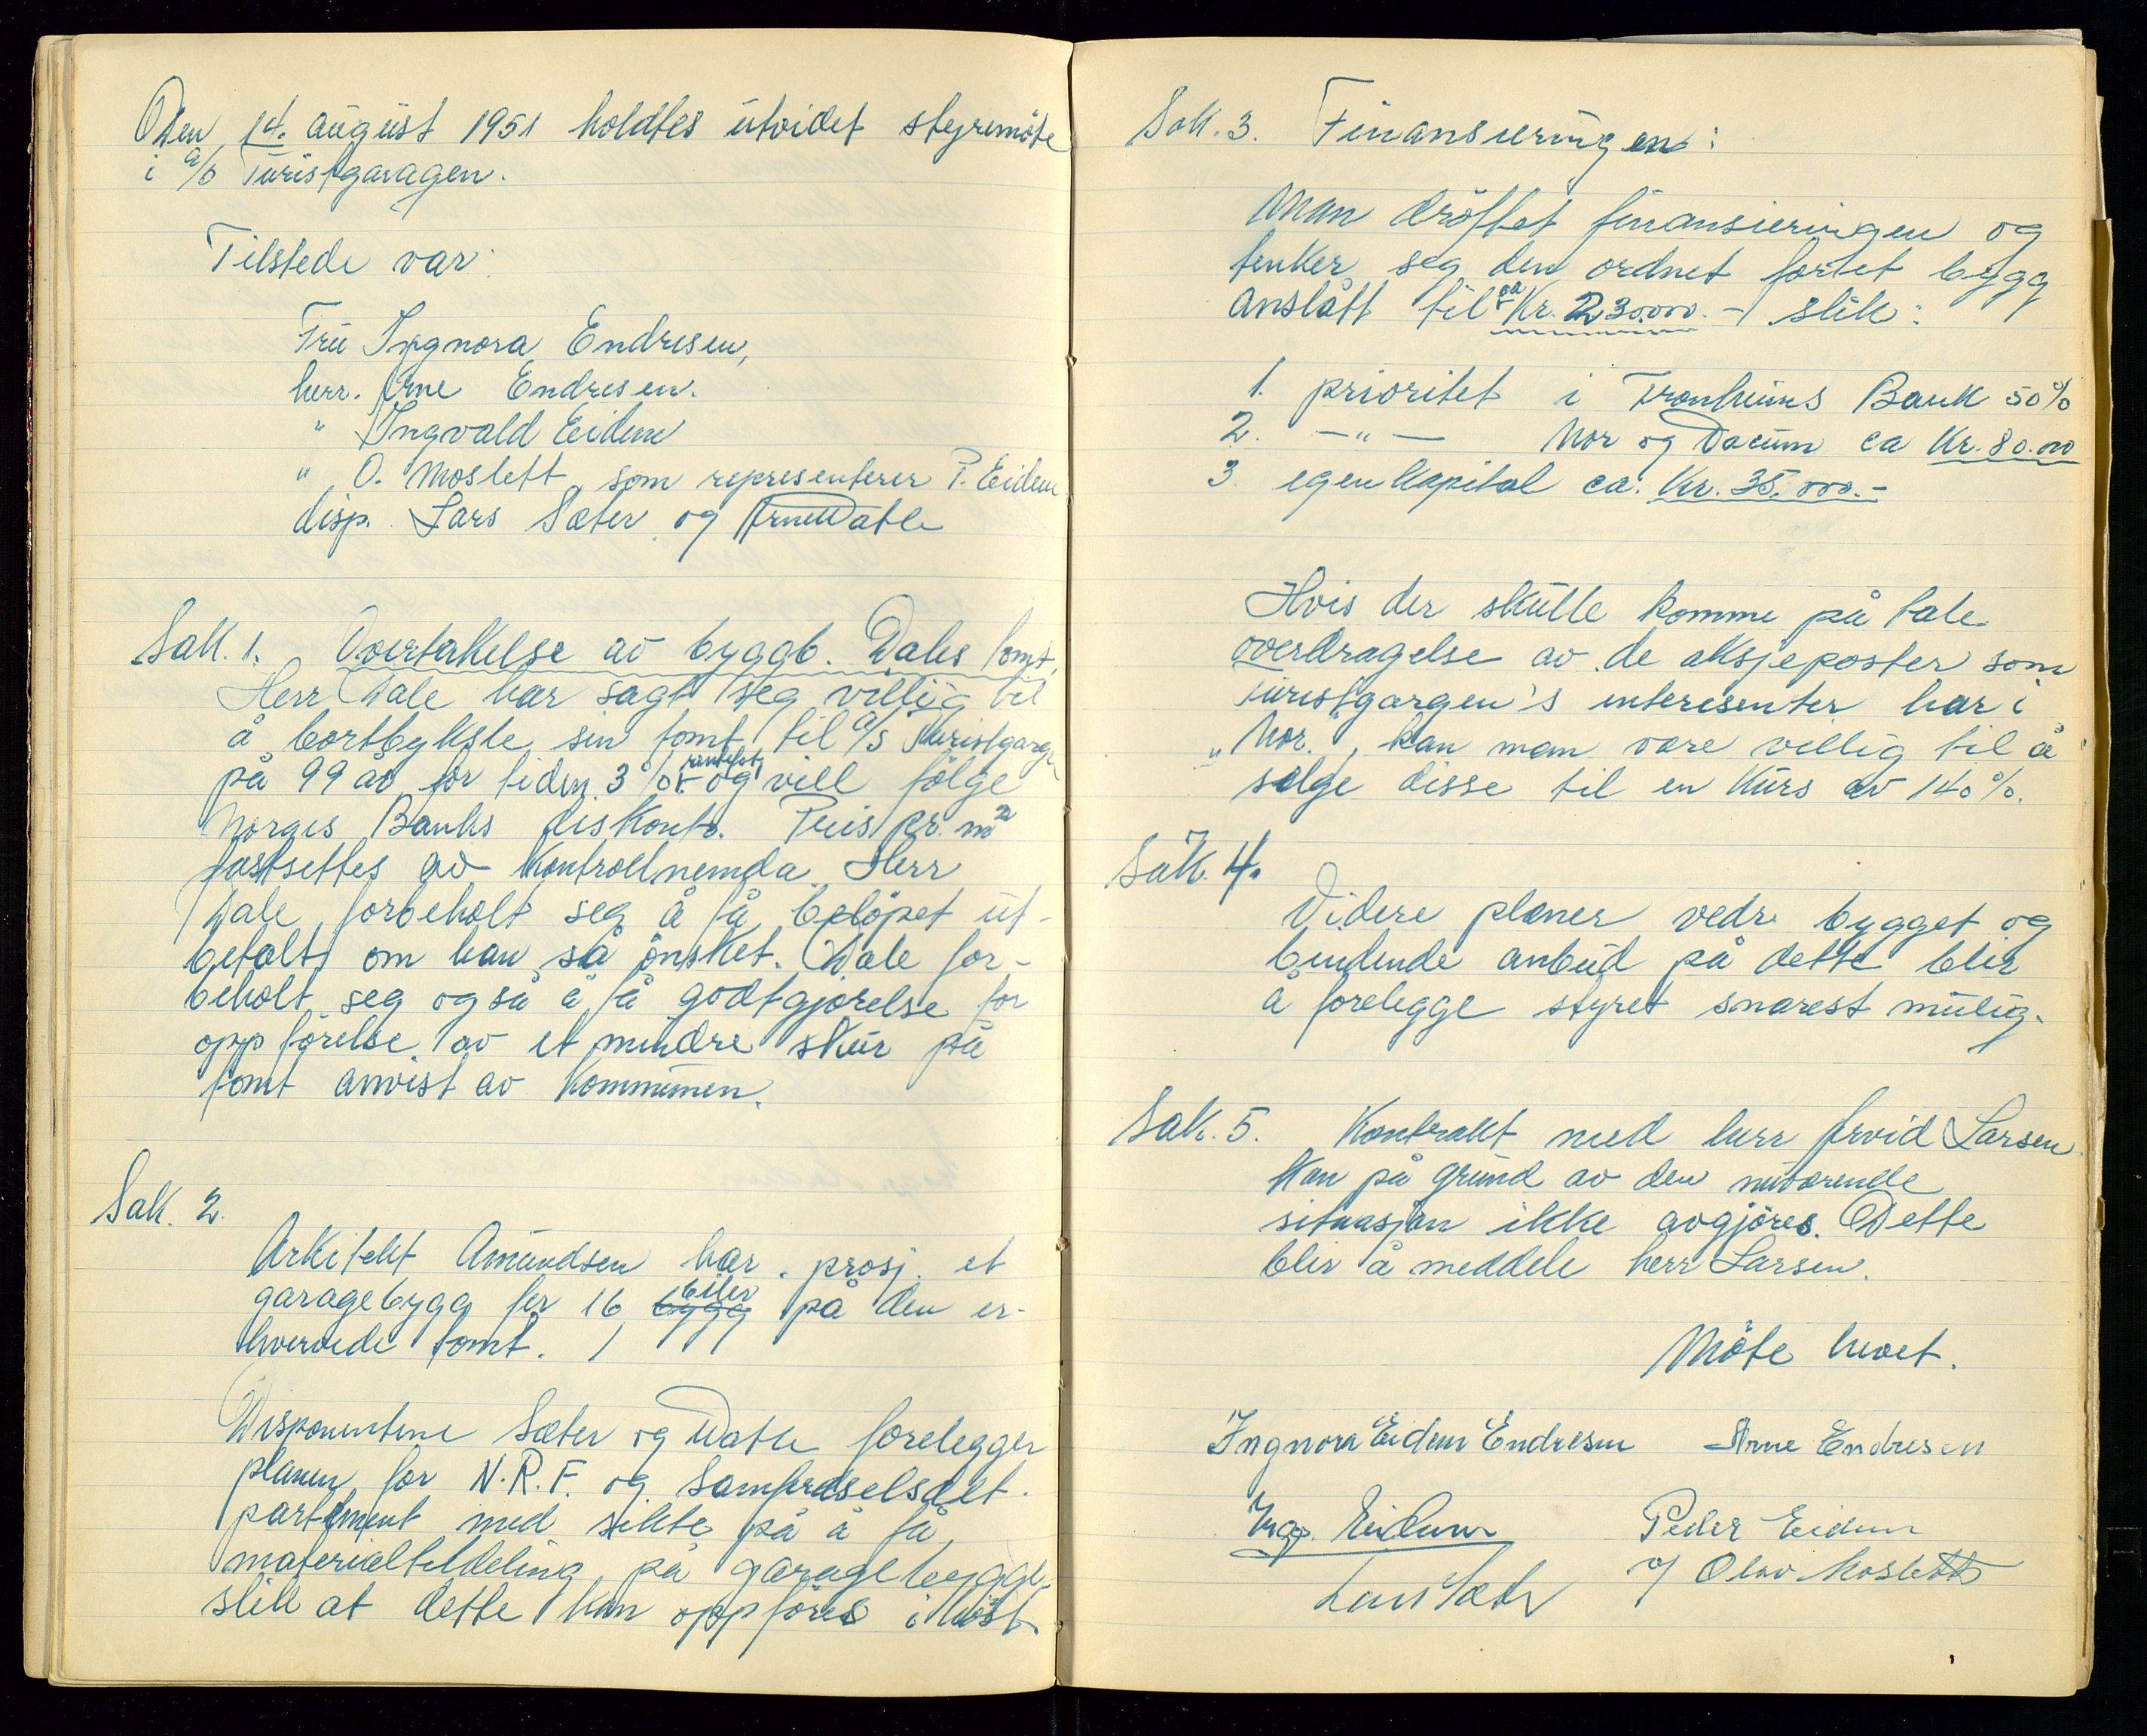 Den 14. august 1951 holdtes utvidet styremöte
i a/s Turistgaragen.
Tilstede var:
Fru Ingnora Endresen,
herr. Arne Endresen.
" Ingvald Eidem
" O. Moslett som representerer P. Eidem
disp. Lars Sæter og Arne Datle
Sak. 1. Overtakelse av byggb. Dales tomt.
Herr Dale har sagt seg villig til
å bortbyksle sin tomt til a/s Turistgarage
på 99 år for tiden 3 % og rentefot vill fölge
Norges Banks diskonto. Pris pr. m²
fastsettes av kontrollnemda. Herr
Dale forbeholt seg å få belöpet ut-
betalt om han så önsket. Dale for-
beholt seg også å få godtgjörelse for
oppförelse av et mindre skur på
tomt anvist av kommunen.
Sak. 2.
Arkitekt Amundsen har prosj. et
garagebygg for 16 bygg biler på den er-
hvervede tomt.
Disponentene Sæter og Datle forelegger
planen for N.R.F. og Samferdselsdet.
partement med sikte på å få
materialtildeling på garagebygge-
slik at dette kan oppföres i höst.
Sak. 3. Finansieringen:
Man dröftet finansieringen og
tenker seg den ordnet for et bygg
anslått til ca Kr. 230.000.- slik:
1. prioritet i Tronheims Bank 50%
2. -"- Nor og Dacum ca Kr. 80.000
3. egenkapital ca. Kr. 35.000.-
Hvis der skulle komme på tale
overdragelse av de aksjeposter som
Turistgargen's interesenter har i
"Nor", kan man være villig til å
selge disse til en kurs av 140%.
Sak. 4.
Videre planer vedr. bygget og
bindende anbud på dette blir
å forelegge styret snarest mulig.
Sak. 5. Kontrakt med herr Arvid Larsen
kan på grund av den nuværende
situasjon ikke avgjöres. Dette
blir å meddele herr Larsen.
Möte hevet.
Ingnora Eidem Endresen Arne Endresen
Ing. Eidem Peder Eidem
Lars Sæter v/ Olav Moslett